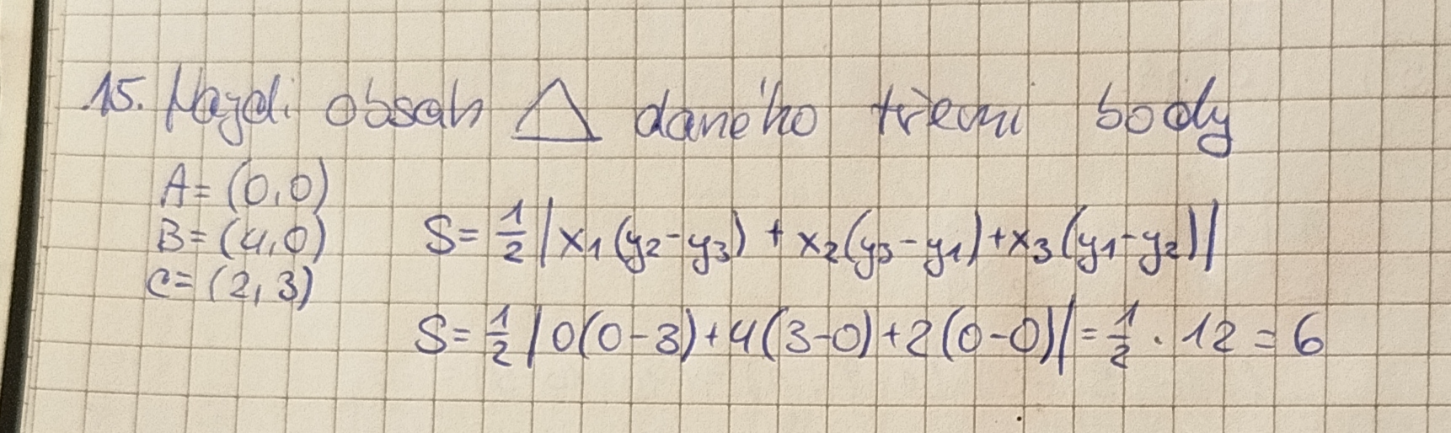 15. Najdi obsah △ daného třemi body
A = (0,0)
B = (4,0)
C = (2,3)
S = 1/2 |x₁(y₂-y₃) + x₂(y₃-y₁)+x₃(y₁-y₂)|
S = 1/2 |0(0-3)+4(3-0)+2(0-0)| = 1/2 · 12 = 6